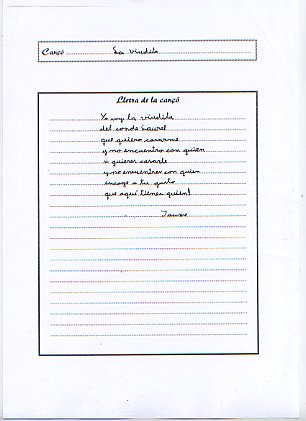 Cançó La viudita
Lletra de la cançó
Yo soy la viudita
del conde Laurel
que quiero casarme
y no encuentro con quién
si quieres casarte
y no encuentras con quien
escoge a tu gusto
que aquí tienes quien!